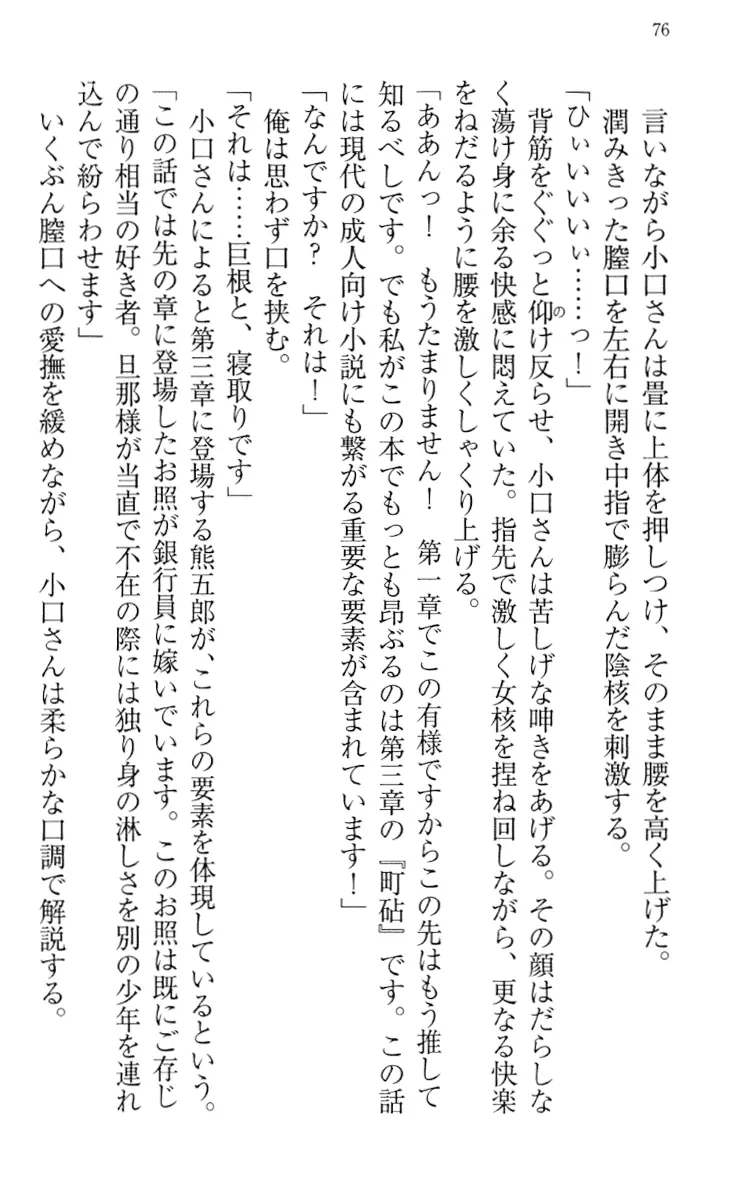 76
言いながら小口さんは畳に上体を押しつけ、そのまま腰を高く上げた。
潤みきった膣口を左右に開き中指で膨らんだ陰核を刺激する。
「ひぃぃぃぃぃ……っ！」
背筋をぐぐっと仰け反らせ、小口さんは苦しげな呻きをあげる。その顔はだらしな
く蕩け身に余る快感に悶えていた。指先で激しく女核を捏ね回しながら、更なる快楽
をねだるように腰を激しくしゃくり上げる。
「ああんっ！　もうたまりません！　第一章でこの有様ですからこの先はもう推して
知るべしです。でも私がこの本でもっとも昂ぶるのは第三章の『町砧』です。この話
には現代の成人向け小説にも繋がる重要な要素が含まれています！」
「なんですか？　それは！」
俺は思わず口を挟む。
「それは……巨根と、寝取りです」
小口さんによると第三章に登場する熊五郎が、これらの要素を体現しているという。
「この話では先の章に登場したお照が銀行員に嫁いでいます。このお照は既にご存じ
の通り相当の好き者。旦那様が当直で不在の際には独り身の淋しさを別の少年を連れ
込んで紛らわせます」
いくぶん膣口への愛撫を緩めながら、小口さんは柔らかな口調で解説する。